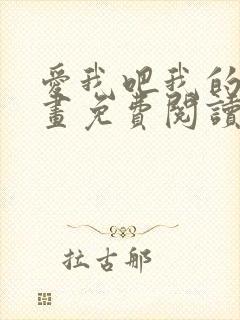 愛我吧我的
畫免費閱讀
拉古那